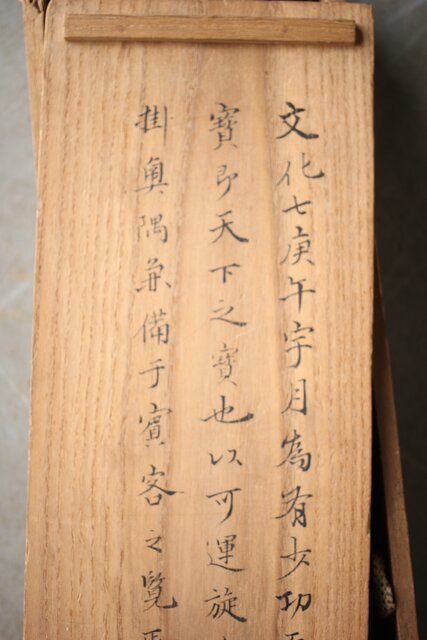 文化七庚午宇月為有少功
寶即天下之寶也以可運旋
掛奥隅兼備于賓客之覧